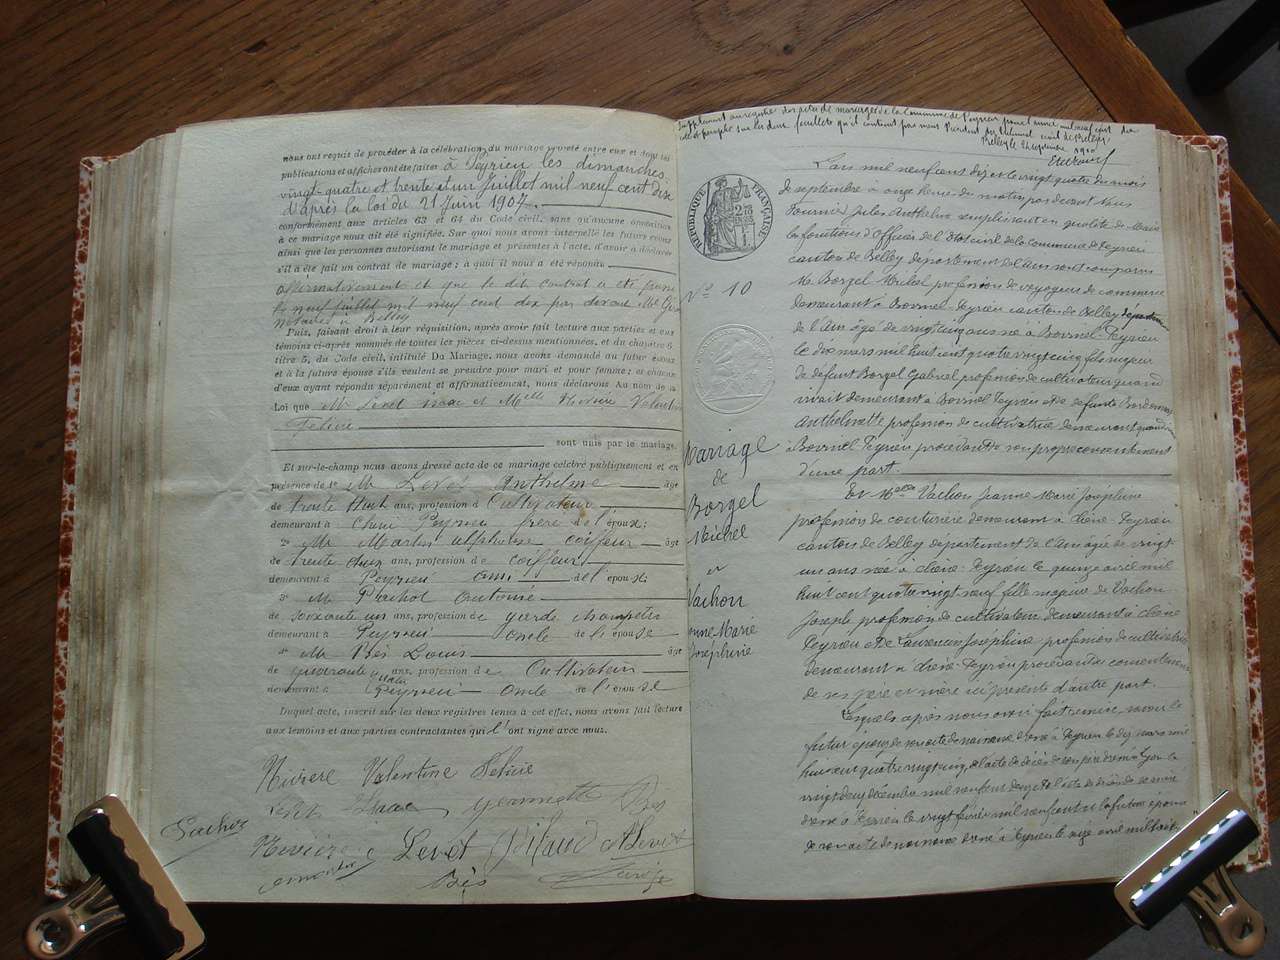 nous ont requis de procéder à la célébration du mariage projeté entre eux et dont les
publications et affiches ont été faites à Peyrieu les dimanches
vingt-quatre et trente et un Juillet mil neuf cent dix
d'après la loi du 21 Juin 1907.
conformément aux articles 63 et 64 du Code civil, sans qu'aucune opposition
à ce mariage nous ait été signifiée. Sur quoi nous avons interpellé les futurs époux
ainsi que les personnes autorisant le mariage et présentes à l'acte, d'avoir à déclarer
s'il a été fait un contrat de mariage; à quoi il nous a été répondu
affirmativement et que le dit contrat a été passé
le neuf juillet mil neuf cent dix par devant Me
notaire à Belley
Puis, faisant droit à leur réquisition, après avoir fait lecture aux parties et aux
témoins ci-après nommés de toutes les pièces ci-dessus mentionnées, et du chapitre 6
titre 5, du Code civil, intitulé Du Mariage, nous avons demandé au futur époux
et à la future épouse s'ils veulent se prendre pour mari et pour femme; et chacun
d'eux ayant répondu séparément et affirmativement, nous déclarons Au nom de la
Loi que Mr Levet Isaac et Melle Rivière Valentine
Félicie
sont unis par le mariage.
Et sur-le-champ nous avons dressé acte de ce mariage célébré publiquement et en
présence de 1° Mr Levet Anthelme âgé
de trente huit ans, profession de Cultivateur
demeurant à Chéné Peyrieu frère de l'époux;
2° Mr Martin Alphonse coiffeur âgé
de trente ans, profession de coiffeur
demeurant à Peyrieu ami de l'épouse;
3° Mr Antoine
de soixante un ans, profession de garde champêtre
demeurant à Peyrieu oncle de l'épouse
4° Mr Bès Louis âgé
de quarante quatre ans, profession de Cultivateur
demeurant à Peyrieu oncle de l'épouse
Duquel acte, inscrit sur les deux registres tenus à cet effet, nous avons fait lecture
aux témoins et aux parties contractantes qui l'ont signé avec nous.
Rivière Valentine Félicie
Levet Isaac Jeannette Bès
Rivière Levet Pilaud A Levet
Bès
Supplément au registre des actes de mariages de la Commune de Peyrieu pour l'année mil neuf cent dix
et paraphé sur les deux feuillets qu'il contient par nous Président du tribunal civil de Belley
Belley le septembre 1910
RÉPUBLIQUE FRANÇAISE
N° 10
Mariage
de
Borgel
Michel
et
Vachon
Jeanne Marie
Joséphine
L'an mil neuf cent dix et le vingt quatre du mois
de septembre à onze heures du matin par devant Nous
Fournier Jules Anthelme remplissant en qualité de Maire
les fonctions d'Officier de l'Etat civil de la commune de Peyrieu
canton de Belley département de l'Ain sont comparus
Mr Borgel Michel profession de voyageur de commerce
demeurant à Bovinel-Peyrieu canton de Belley département
de l'Ain âgé de vingt cinq ans né à Bovinel-Peyrieu
le dix mars mil huit cent quatre vingt cinq fils majeur
de défunt Borgel Gabriel profession de cultivateur quand
vivait demeurant à Bovinel Peyrieu et de défunte
Anthelmette profession de cultivatrice demeurant quand vivait
à Bovinel Peyrieu procédant de son propre consentement
d'une part.
Et Melle Vachon Jeanne Marie Joséphine
profession de couturière demeurant à Chéné-Peyrieu
canton de Belley département de l'Ain âgée de vingt
un ans née à Chéné-Peyrieu le quinze avril mil
huit cent quatre vingt neuf fille majeure de Vachon
Joseph profession de cultivateur demeurant à Chéné
Peyrieu et de Laurencin Joséphine profession de cultivatrice
demeurant à Chéné-Peyrieu procédant du consentement
de ses père et mère ici présents d'autre part.
Lesquels après nous avoir fait remise, savoir le
futur époux de son acte de naissance dressé à Peyrieu le dix mars mil
huit cent quatre vingt cinq, de l'acte de décès de son père dressé à
vingt deux décembre mil neuf cent de l'acte de décès de sa mère
dressé à Peyrieu le vingt février mil neuf cent et la future épouse
de son acte de naissance dressé à Peyrieu le seize avril mil huit